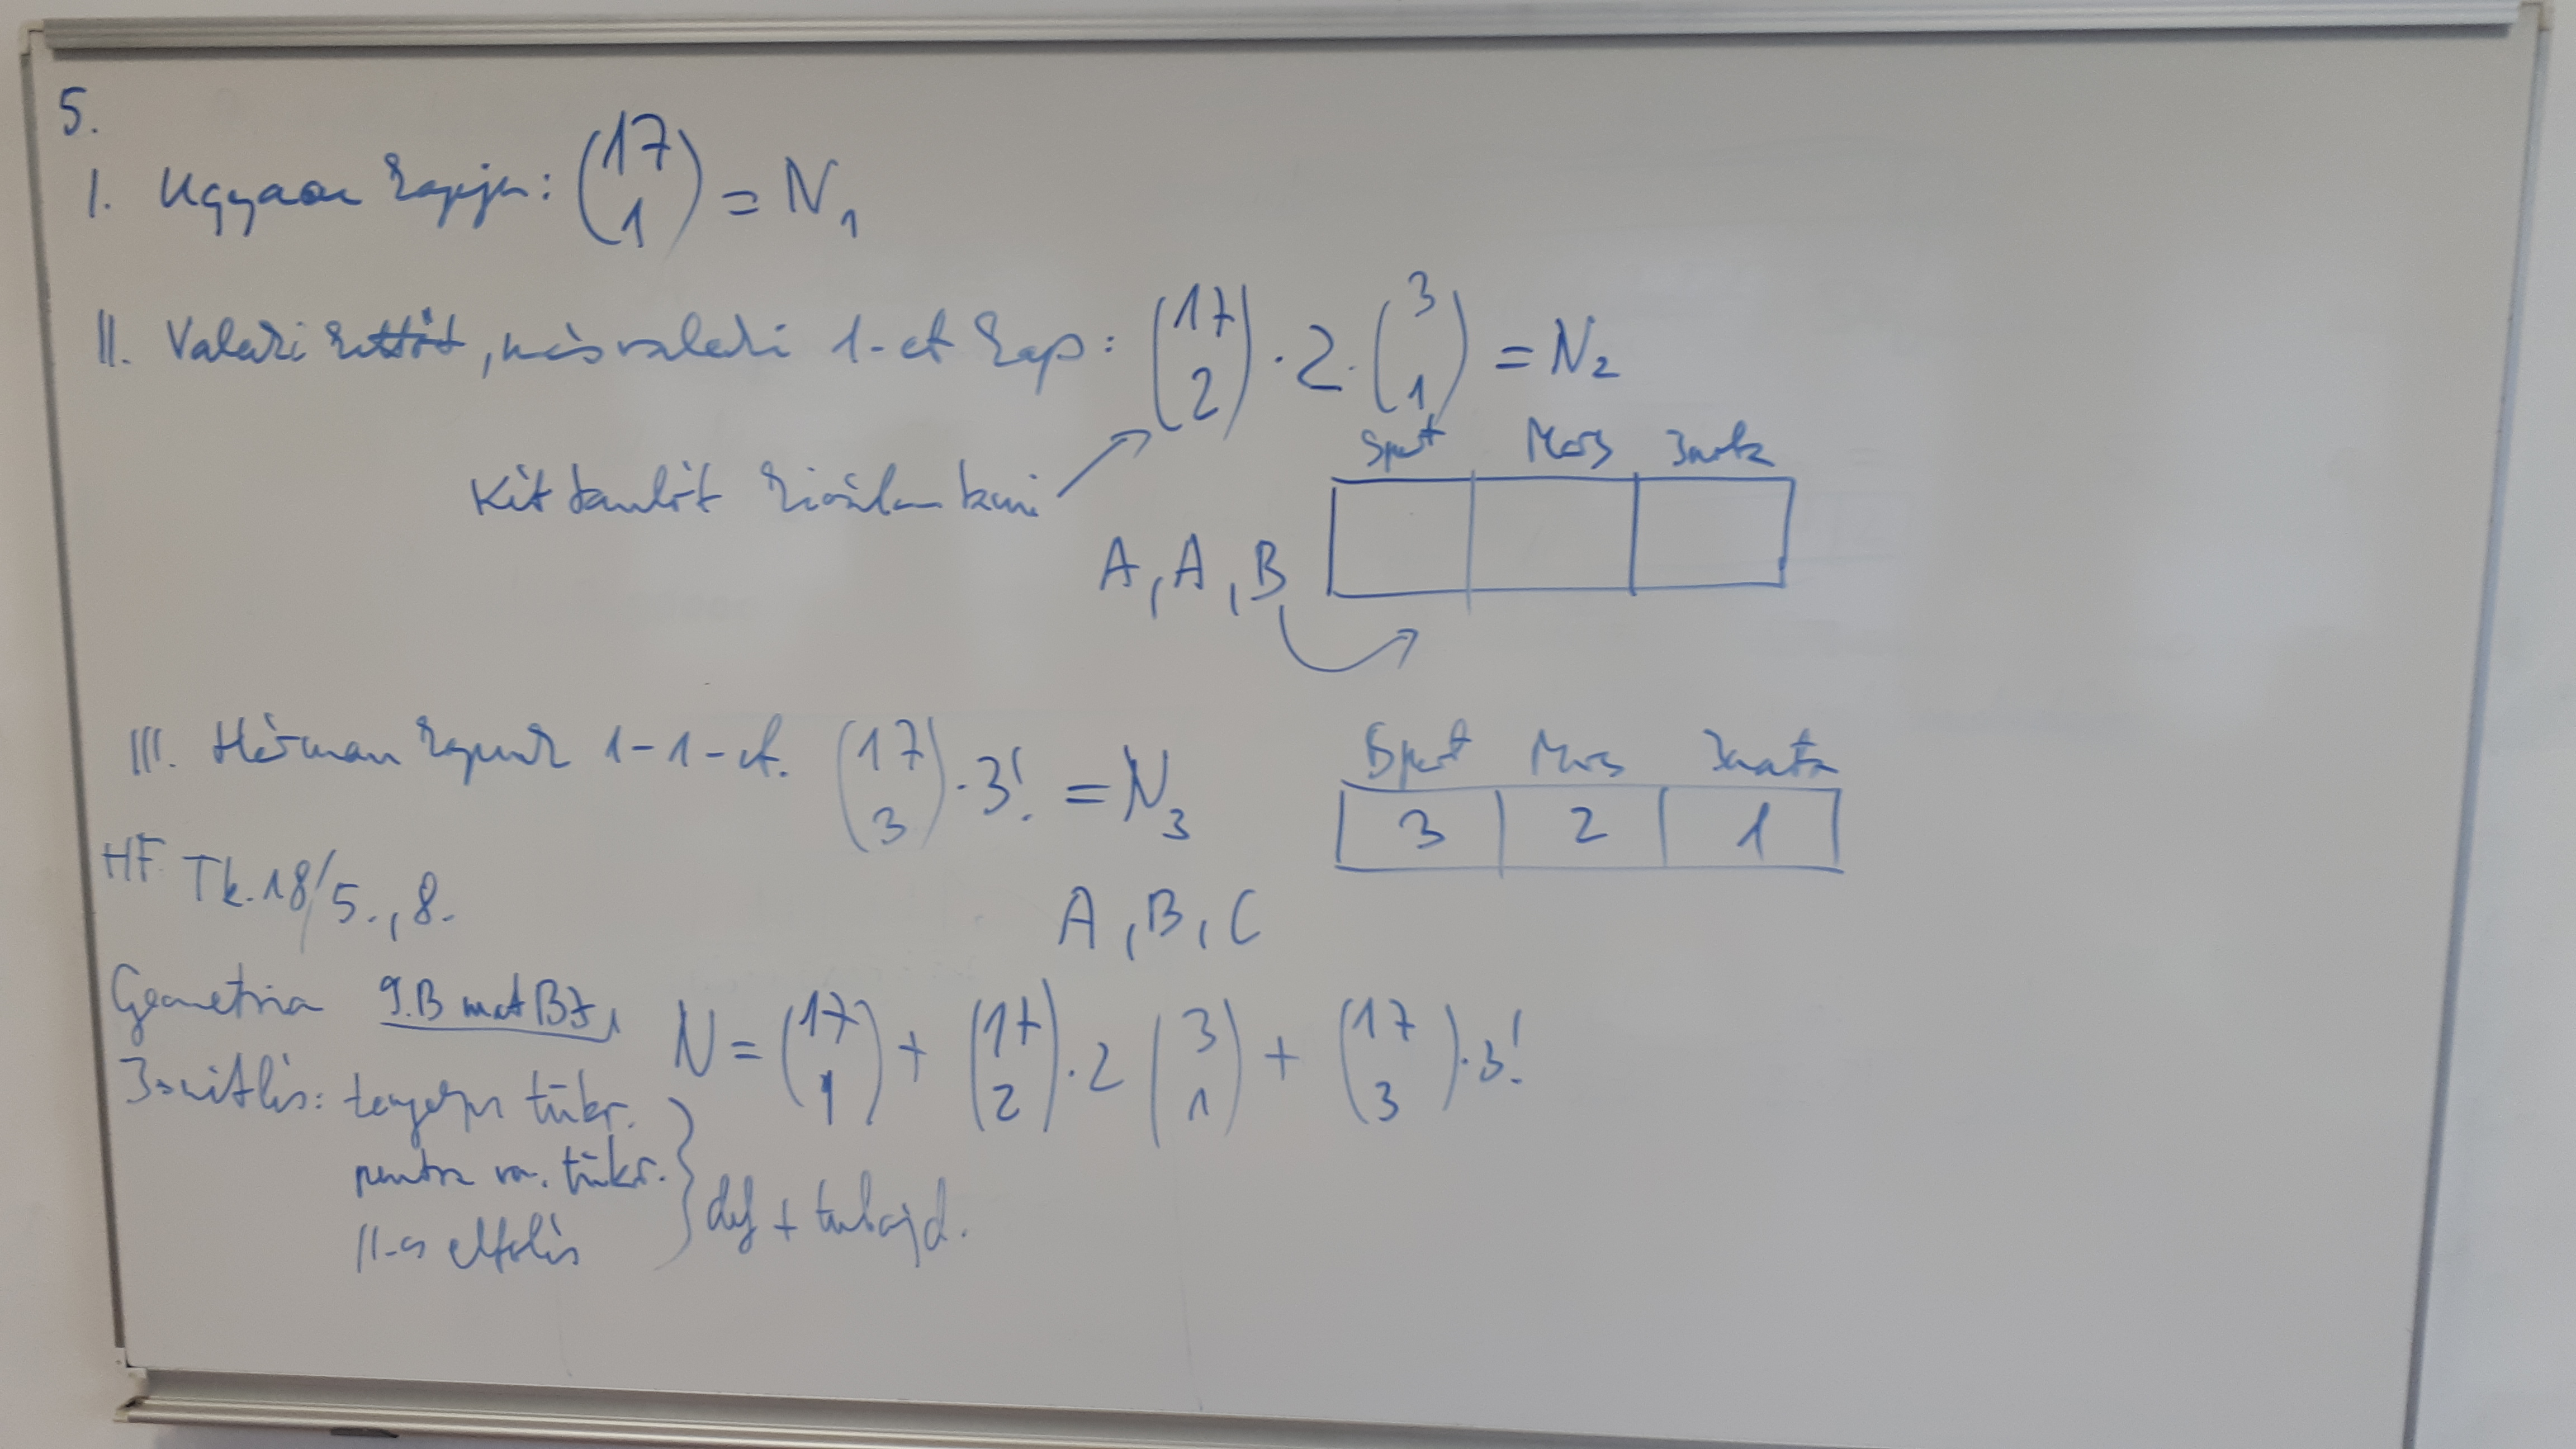 5.
I. Ugyanaz kapja: (17 1) = N₁
II. Valaki kettőt, másvalaki 1-et kap: (17 2) · 2 · (3 1) = N₂
Két tanulót kiválasztani
Sport Mozi Zents
A, A, B
III. Hárman kapnak 1-1-et. (17 3) · 3! = N₃
Sport Mozi
3 2 1
HF. Tk. 18/5., 8.
A, B, C
Geometria 9.B mat BZ
N = (17 1) + (17 2) · 2 (3 1) + (17 3) · 3!
Ismétlés: tengelyes tükr.
pontra von. tükr.
||-os eltolás
def + tulajd.